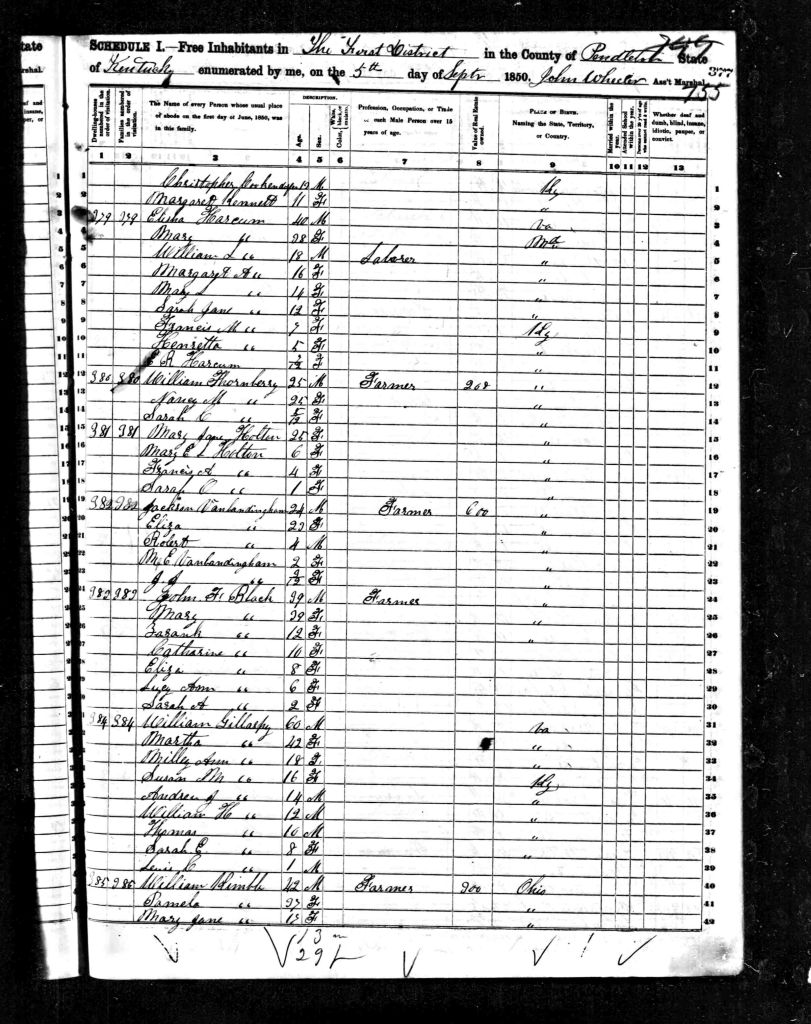 tate
arshal.
SCHEDULE I.—Free Inhabitants in The First District in the County of Pendleton State
of Kentucky enumerated by me, on the 5th day of Septr 1850. John Wheeler Ass't Marshal.
377
155
Dwelling-houses numbered in the order of visitation.
Families numbered in the order of visitation.
The Name of every Person whose usual place of abode on the first day of June, 1850, was in this family.
DESCRIPTION.
Age.
Sex.
Color, White, black, or mulatto.
Profession, Occupation, or Trade of each Male Person over 15 years of age.
Value of Real Estate owned.
PLACE OF BIRTH. Naming the State, Territory, or Country.
Married within the year.
Attended School within the year.
Persons over 20 y'rs of age who cannot read & write.
Whether deaf and dumb, blind, insane, idiotic, pauper, or convict.
1 2 3 4 5 6 7 8 9 10 11 12 13
1 Christopher 13 M Ky 1
2 Margaret Kennett 11 F " 2
3 379 379 Elisha Harcum 40 M Va 3
4 Mary " 38 F 4
5 William L " 18 M Laborer " 5
6 Margaret A " 16 F " 6
7 Mary " 14 F " 7
8 Sarah Jane " 12 F " 8
9 Francis M " 7 F Ky 9
10 Henrietta " 5 F " 10
11 E R Harcum F " 11
12 380 380 William Thornberry 25 M Farmer 200 " 12
13 Nancy M " 25 F " 13
14 Sarah C " F " 14
15 381 381 Mary Jane Holton 25 F " 15
16 Mary E L Holton 6 F " 16
17 Francis A " 4 F " 17
18 Sarah C " 1 F " 18
19 382 382 Jackson Vanlandingham 24 M Farmer 600 " 19
20 Eliza " 23 F " 20
21 Robert " 4 M " 21
22 M, E Vanlandingham 2 F " 22
23 J J " F " 23
24 383 383 F Black 39 M Farmer " 24
25 Mary " 39 F " 25
26 " 12 F " 26
27 Catharine " 10 F 27
28 Eliza " 8 F 28
29 Lucy Ann " 6 F 29
30 Sarah A " 2 F 30
31 384 384 William Gillaspy 60 M Va 31
32 Martha " 42 F " 32
33 Milley Ann " 18 F " 33
34 Susan M " 16 F Ky 34
35 Andrew J " 14 M " 35
36 William H " 12 M " 36
37 Thomas " 10 M " 37
38 Sarah E " 8 F " 38
39 Lewis C " 1 M 39
40 385 385 William Kimble 42 M Farmer 900 Ohio 40
41 Pamela " 37 F " 41
42 Mary Jane " 17 F " 42
13 m
29